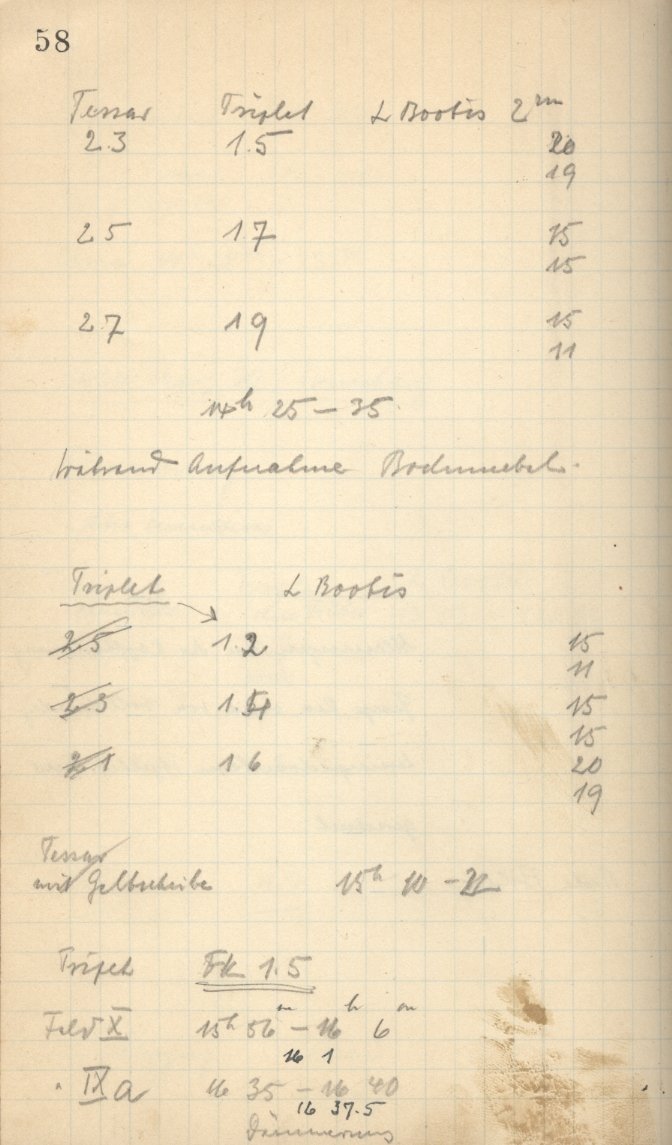 58
Tessar Triplet α Bootis 2m
2.3 1.5 20
19
2 5 1.7 15
15
2 7 1 9 15
11
14h 25 – 35
Während Aufnahme Bodennebel.
Triplet α Bootis
2.5 1.2 15
11
2.3 1.4 15
15
2.1 1 6 20
19
Tessar
mit Gelbscheibe 15h 10 – 21
Triplet Fk 1.5
Feld X 15h 56m – 16h 6m
16 1
" IXa 16 35 – 16 40
16 37.5
Dämmerung